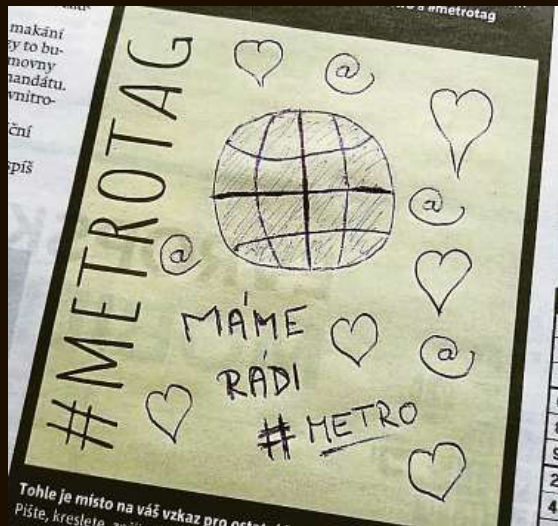 #metrotag
makání
zy to bu-
movny
mandátu.
vnitro-
ční
spíš
#METROTAG
@
@
@
@
MÁME
RÁDI
#METRO
Tohle je místo na váš vzkaz pro
Pište, kreslete,